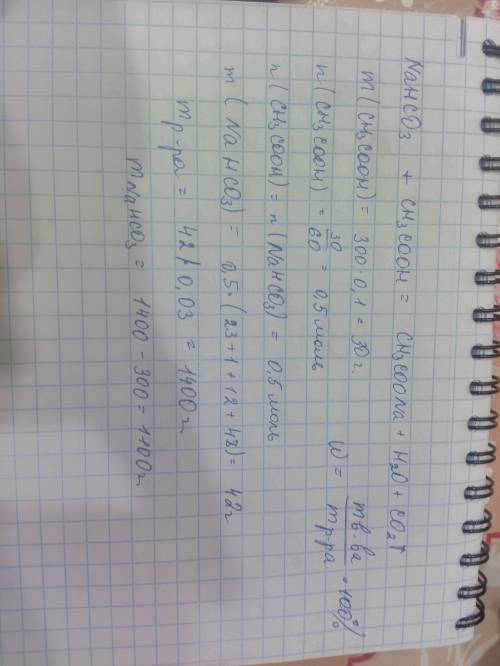 NaHCO₃ + CH₃COOH = CH₃COONa + H₂O + CO₂↑
m(CH₃COOH) = 300·0,1 = 30 г.
n(CH₃COOH) = 30/60 = 0,5 моль
ω = mв-ва/mр-ра · 100%
n(CH₃COOH) = n(NaHCO₃) = 0,5 моль
m(NaHCO₃) = 0,5·(23+1+12+48) = 42 г
mр-ра = 42/0,03 = 1400 г.
mNaHCO₃ = 1400 - 300 = 1100 г